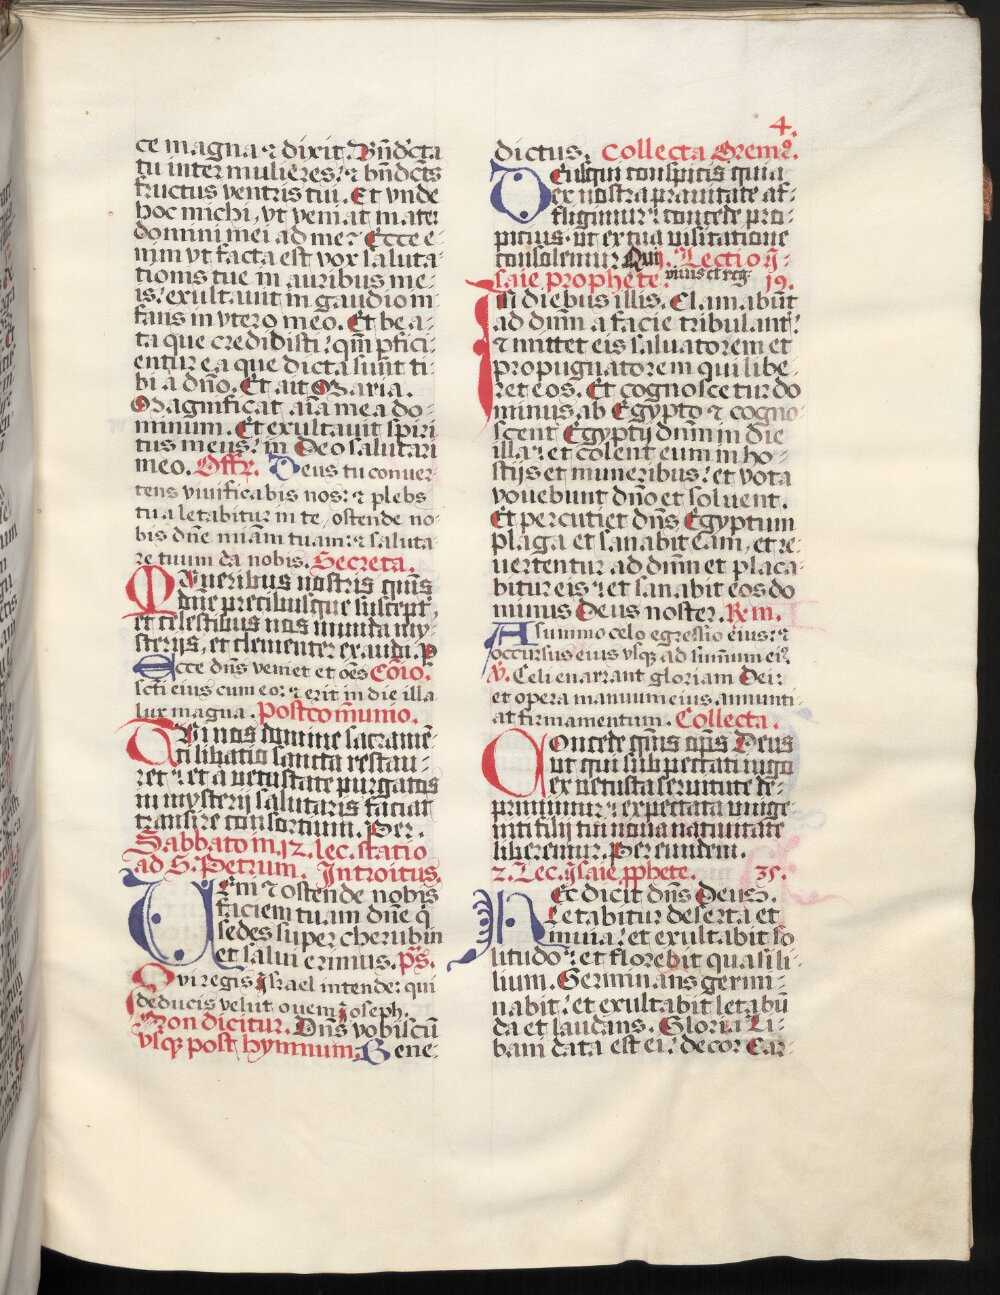 4.
ce magna ⁊ dixit. Bn̄dcta
tu inter mulieres: ⁊ bn̄dcts
fructus ventris tui. Et vnde
hoc michi, vt veniat mater
domini mei ad me? Ecce e-
nim vt facta est vox saluta-
tionis tue in auribus me-
is: exultauit in gaudio in-
fans in vtero meo. Et be a-
ta que credidisti: qm̄ pfici-
entur ea que dicta sunt ti-
bi a dn̄o. Et ait Maria.
Magnificat aīa mea do-
minum. Et exultauit spiri
tus meus: in Deo salutari
meo. Offr. Deus tu conuer-
tens viuificabis nos: ⁊ plebs
tua letabitur in te, ostende no-
bis dn̄e mīam tuam: ⁊ saluta-
re tuum da nobis. Secreta.
Muneribus nostris qūs
dn̄e precibusque suscept̄,
et celestibus nos munda my-
sterijs, et clementer exaudi. P
Ecce dn̄s veniet et oēs Cōio.
scti eius cum eo: ⁊ erit in die illa
lux magna. Postcom̄unio.
Tui nos domine sacramē-
ti libatio sancta restau-
ret: et a vetustate purgatos
in mysterij salutaris faciat
transire consortium. Per.
Sabbato in .12. lec. statio
ad S. Petrum. Introitus.
Ueni ⁊ ostende nobis
faciem tuam dn̄e q̄
sedes super cherubin
et salui erimus. ps.
Qui regis Israel intende: qui
deducis velut ouem ioseph.
Non dicitur. Dn̄s vobiscū
vsq post hymnum. Bene-
dictus. Collecta Oremꝰ.
Deus qui conspicis quia
ex nostra prauitate af-
fligimur: concede pro-
pitius ut ex tua visitatione
consolemur Qui. Lectio ij-
saie prophete. viuis et reg- 19.
In diebus illis. Clamabūt
ad dn̄m a facie tribulantꝭ:
⁊ mittet eis saluatorem et
propugnatorem qui libe-
ret eos. Et cognoscetur do
minus ab Egypto ⁊ cogno-
scent Egyptij dn̄m in die
illa: et colent eum in ho-
stijs et muneribus: et vota
vouebunt dn̄o et soluent.
Et percutiet dn̄s Egyptum
plaga et sanabit eam, et re-
uertentur ad dn̄m et placa-
bitur eis: et sanabit eos do
minus Deus noster. R. m.
A summo celo egressio eius: ⁊
occursus eius vsqꝫ ad summum eiꝰ.
V. Celi enarrant gloriam Dei:
et opera manuum eius annunti-
at firmamentum. Collecta.
Concede qūs op̄s Deus
ut qui sub peccati iugo
ex vetusta seruitute de-
primimur: expectata unige-
niti filij tui noua natiuitate
liberemur. Per eundem.
2. Lec. ysaie pphete. 35.
Hec dicit dn̄s Deus.
Letabitur deserta et
inuia: et exultabit so
litudo: et florebit quasi li-
lium. Germinans germi-
nabit: et exultabit letabū
da et laudans. Gloria Li-
bani data est ei: decor Car-